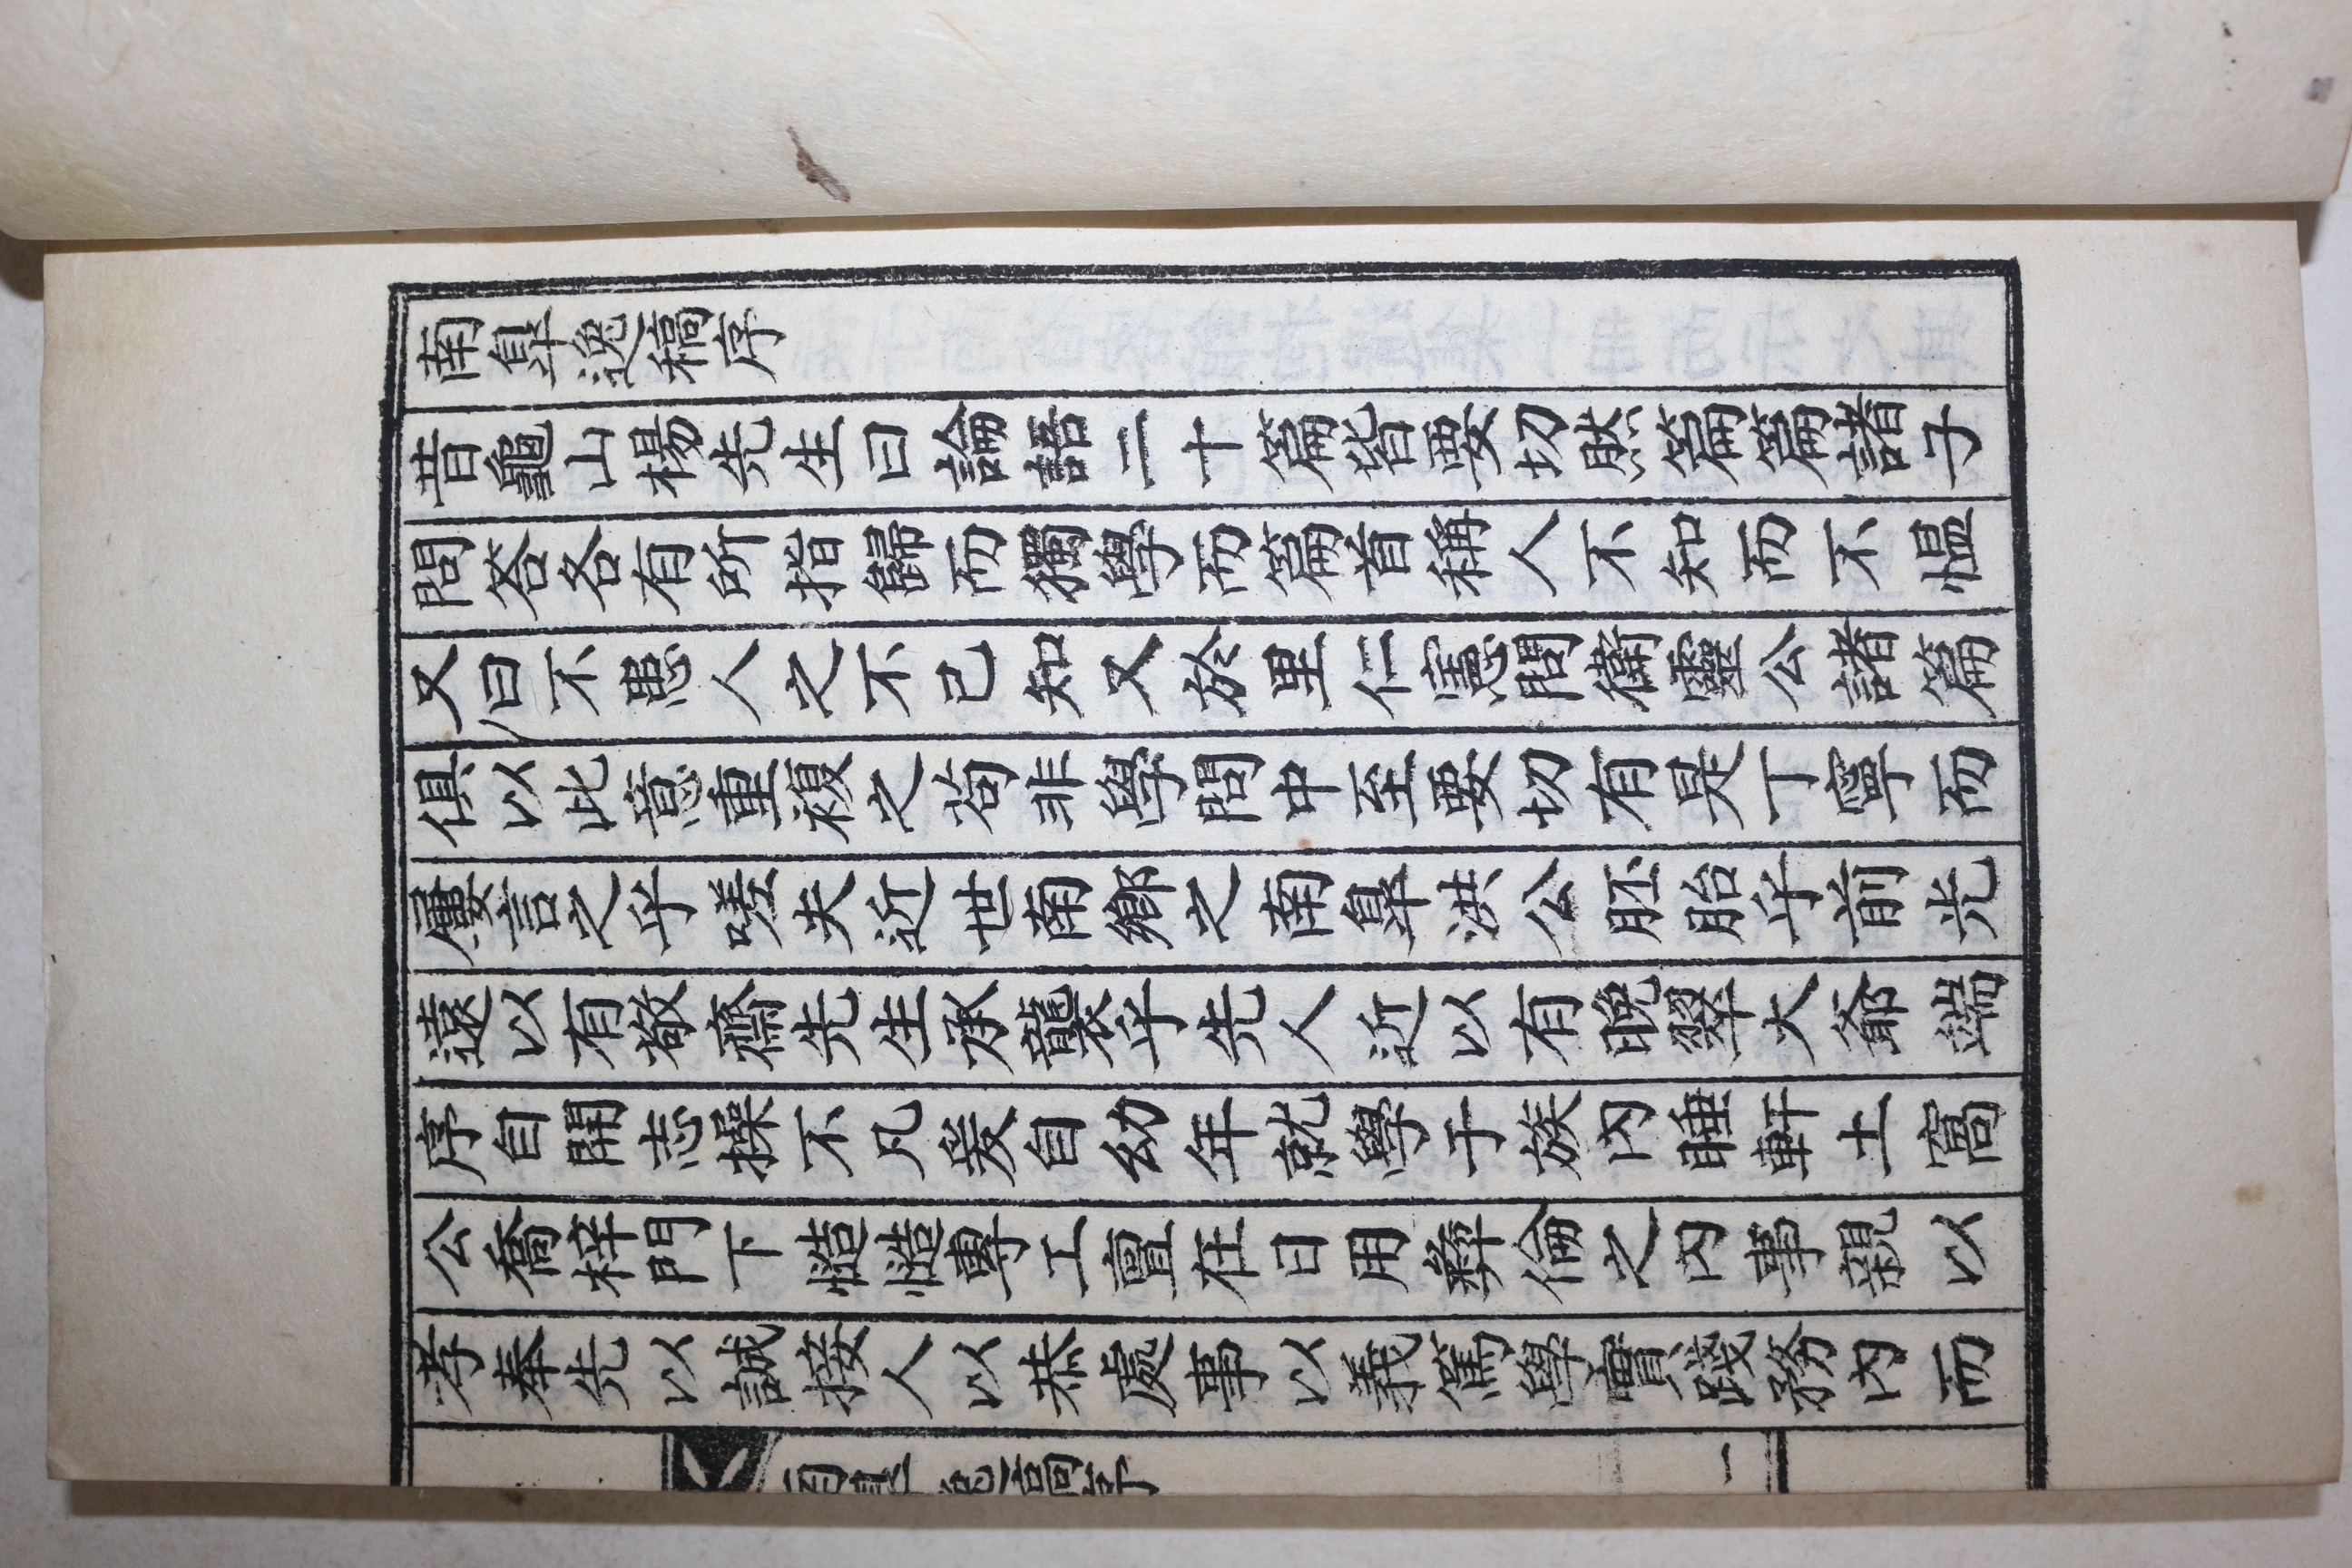 南皐逸稿序
昔龜山楊先生曰論語二十篇皆要切然篇篇諸子
問答各有所指歸而獨學而篇首稱人不知而不慍
又曰不患人之不己知又於里仁憲問衛靈公諸篇
俱以此意重複之苟非學問中至要切有是丁寧而
屢言之乎嗟夫近世南鄉之南皐洪公胚胎乎前光
遠以有敬齋先生承襲乎先人近以有晚翠大爺端
序自開志操不凡爰自幼年就學于族內睡軒土窩
公喬梓門下慥慥專工亶在日用彛倫之內事親以
孝奉先以誠接人以恭處事以義篤學實踐務內而
南皐逸稿序 一